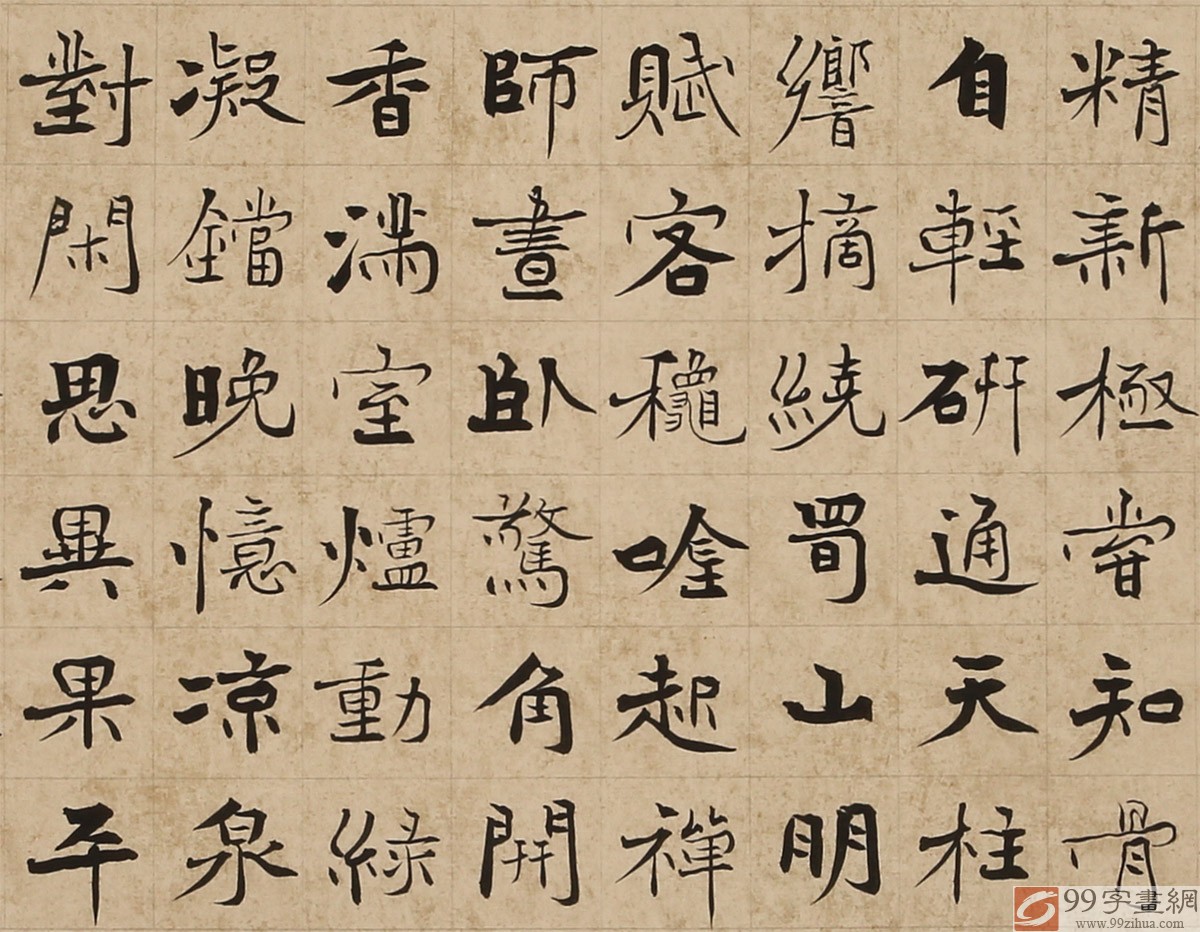 精新極嘗知骨
自輕研通天柱
響摘繞蜀山明
賦客穩唫起禪
師晝臥驚角開
香滿室爐動綠
凝鐺晚憶凉泉
對閑思異果平
99字畫網
www.99zihua.com